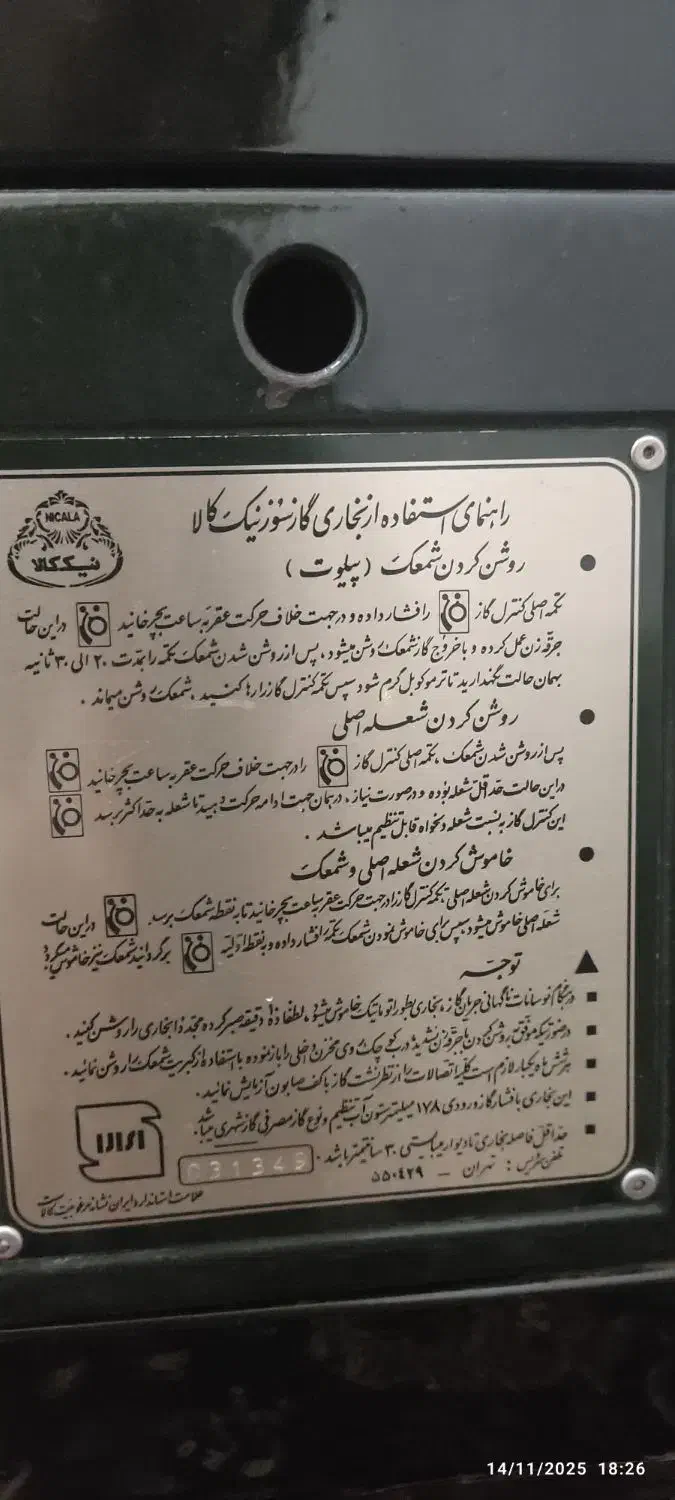 NICALA
نیک کالا
راهنمای استفاده از بخاری گازسوز نیک کالا
● روشن کردن شمعک ( پیلوت )
تکمه اصلی کنترل گاز را فشار داده و در جهت خلاف حرکت عقربه ساعت بچرخانید در این حالت
جرقه زن عمل کرده و با خروج گاز شمعک روشن میشود ، پس از روشن شدن شمعک تکمه را بمدت ۲۰ الی ۳۰ ثانیه
بهمان حالت نگهدارید تا ترموکوپل گرم شود سپس تکمه کنترل گاز را رها کنید ، شمعک روشن میماند .
● روشن کردن شعله اصلی
پس از روشن شدن شمعک ، تکمه اصلی کنترل گاز را در جهت خلاف حرکت عقربه ساعت بچرخانید
در این حالت حداقل شعله بوده و در صورت نیاز ، در همان جهت ادامه حرکت دهید تا شعله به حداکثر برسد
این کنترل گاز به نسبت شعله دلخواه قابل تنظیم میباشد .
● خاموش کردن شعله اصلی و شمعک
برای خاموش کردن شعله اصلی تکمه کنترل گاز را در جهت حرکت عقربه ساعت بچرخانید تا به نقطه شمعک برسد . در این حالت
شعله اصلی خاموش میشود سپس برای خاموش نمودن شمعک تکمه را فشار داده و به نقطه اولیه برگردانید شمعک نیز خاموش میگردد
▲ توجه
■ در هنگام نوسانات ناگهانی جریان گاز ، بخاری بطور اتوماتیک خاموش میشود ، لطفا ده دقیقه صبر کرده مجددا بخاری را روشن کنید .
■ در صورتیکه موفق به روشن کردن با جرقه زن نشدید درب کوچک روی مخزن داخلی را باز نموده با استفاده از کبریت شمعک را روشن نمائید .
■ هر شش ماه یکبار لازم است کلیه اتصالات را از نظر نشت گاز با کف صابون آزمایش نمائید .
■ این بخاری با فشار گاز ورودی ۱۷۸ میلیمتر ستون آب تنظیم و نوع گاز مصرفی گاز شهری میباشد .
■ حداقل فاصله بخاری تا دیوار میبایستی ۳۰ سانتیمتر باشد .
تلفن سرویس : تهران – ۵۵۰۴۲۹
031349
علامت استاندارد ایران نشانه مرغوبیت کالاست
14/11/2025 18:26